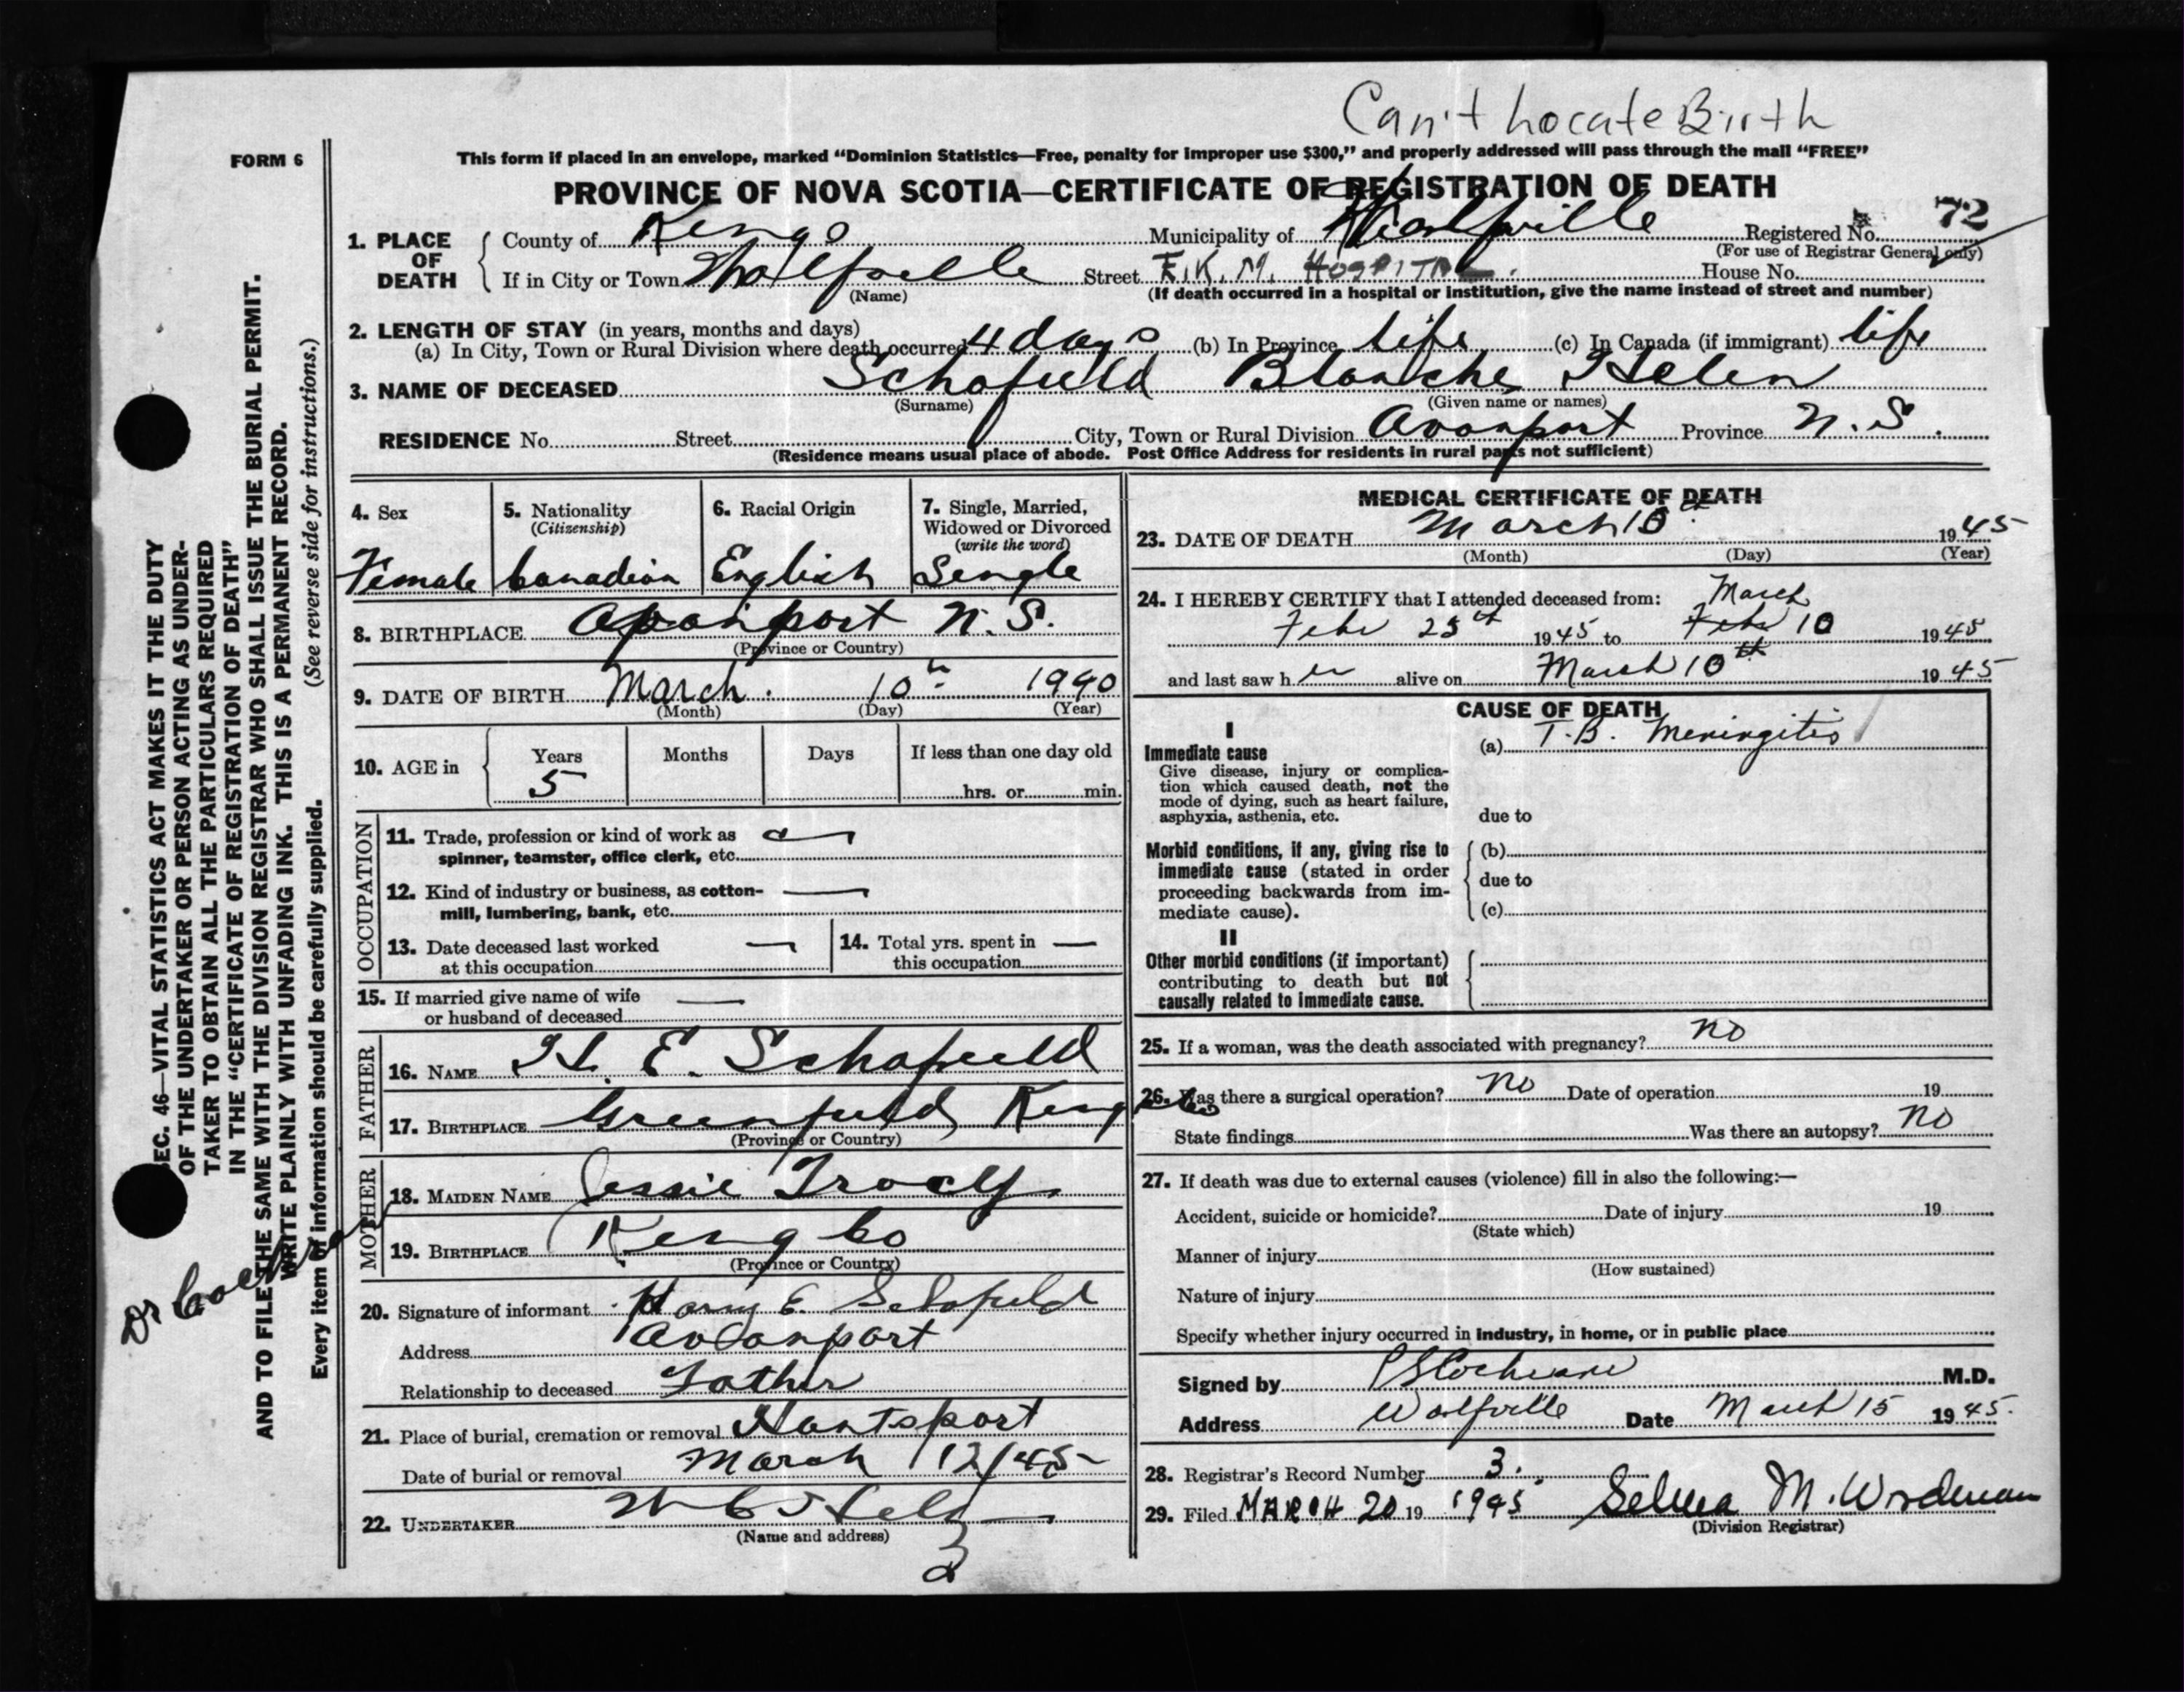 Can't Locate Birth
FORM 6
This form if placed in an envelope, marked "Dominion Statistics—Free, penalty for improper use $300," and properly addressed will pass through the mail "FREE"
PROVINCE OF NOVA SCOTIA—CERTIFICATE OF REGISTRATION OF DEATH
1. PLACE OF DEATH County of Kings Municipality of Wolfville Registered No. 72
(For use of Registrar General only)
If in City or Town Wolfville Street E.K.M. HOSPITAL. House No.
(Name) (If death occurred in a hospital or institution, give the name instead of street and number)
2. LENGTH OF STAY (in years, months and days)
(a) In City, Town or Rural Division where death occurred 4 days (b) In Province life (c) In Canada (if immigrant) life
3. NAME OF DECEASED Schofield Blanche Helen
(Surname) (Given name or names)
RESIDENCE No. Street City, Town or Rural Division Avonport Province N.S.
(Residence means usual place of abode. Post Office Address for residents in rural parts not sufficient)
4. Sex Female
5. Nationality (Citizenship) Canadian
6. Racial Origin English
7. Single, Married, Widowed or Divorced (write the word) Single
8. BIRTHPLACE Avonport N.S.
(Province or Country)
9. DATE OF BIRTH March 10th 1940
(Month) (Day) (Year)
10. AGE in Years Months Days If less than one day old
5 hrs. or min.
OCCUPATION
11. Trade, profession or kind of work as spinner, teamster, office clerk, etc. —
12. Kind of industry or business, as cotton-mill, lumbering, bank, etc. —
13. Date deceased last worked at this occupation —
14. Total yrs. spent in this occupation —
15. If married give name of wife or husband of deceased —
FATHER
16. NAME H. E. Schofield
17. BIRTHPLACE Greenfield Kings Co
(Province or Country)
MOTHER
18. MAIDEN NAME Jessie Tracy
19. BIRTHPLACE Kings Co
(Province or Country)
20. Signature of informant Harry E. Schofield
Address Avonport
Relationship to deceased Father
21. Place of burial, cremation or removal Hantsport
Date of burial or removal March 12/45
22. UNDERTAKER
(Name and address)
MEDICAL CERTIFICATE OF DEATH
23. DATE OF DEATH March 10th 1945
(Month) (Day) (Year)
24. I HEREBY CERTIFY that I attended deceased from: March
Feb 25th 1945 to Feb 10 1945
and last saw her alive on March 10th 1945
CAUSE OF DEATH
I
Immediate cause (a) T.B. Meningitis
Give disease, injury or complication which caused death, not the mode of dying, such as heart failure, asphyxia, asthenia, etc.
due to
Morbid conditions, if any, giving rise to immediate cause (stated in order proceeding backwards from immediate cause).
(b)
due to
(c)
II
Other morbid conditions (if important) contributing to death but not causally related to immediate cause.
25. If a woman, was the death associated with pregnancy? no
26. Was there a surgical operation? no Date of operation 19
State findings Was there an autopsy? no
27. If death was due to external causes (violence) fill in also the following:—
Accident, suicide or homicide? Date of injury 19
(State which)
Manner of injury
(How sustained)
Nature of injury
Specify whether injury occurred in industry, in home, or in public place
Signed by Cochrane M.D.
Address Wolfville Date March 15 1945.
28. Registrar's Record Number 3.
29. Filed MARCH 20 19 1945 M. Wordman
(Division Registrar)
SEC. 46—VITAL STATISTICS ACT MAKES IT THE DUTY
OF THE UNDERTAKER OR PERSON ACTING AS UNDER-
TAKER TO OBTAIN ALL THE PARTICULARS REQUIRED
IN THE "CERTIFICATE OF REGISTRATION OF DEATH"
AND TO FILE THE SAME WITH THE DIVISION REGISTRAR WHO SHALL ISSUE THE BURIAL PERMIT.
WRITE PLAINLY WITH UNFADING INK. THIS IS A PERMANENT RECORD.
Every item of information should be carefully supplied. (See reverse side for instructions.)
Dr Cochran